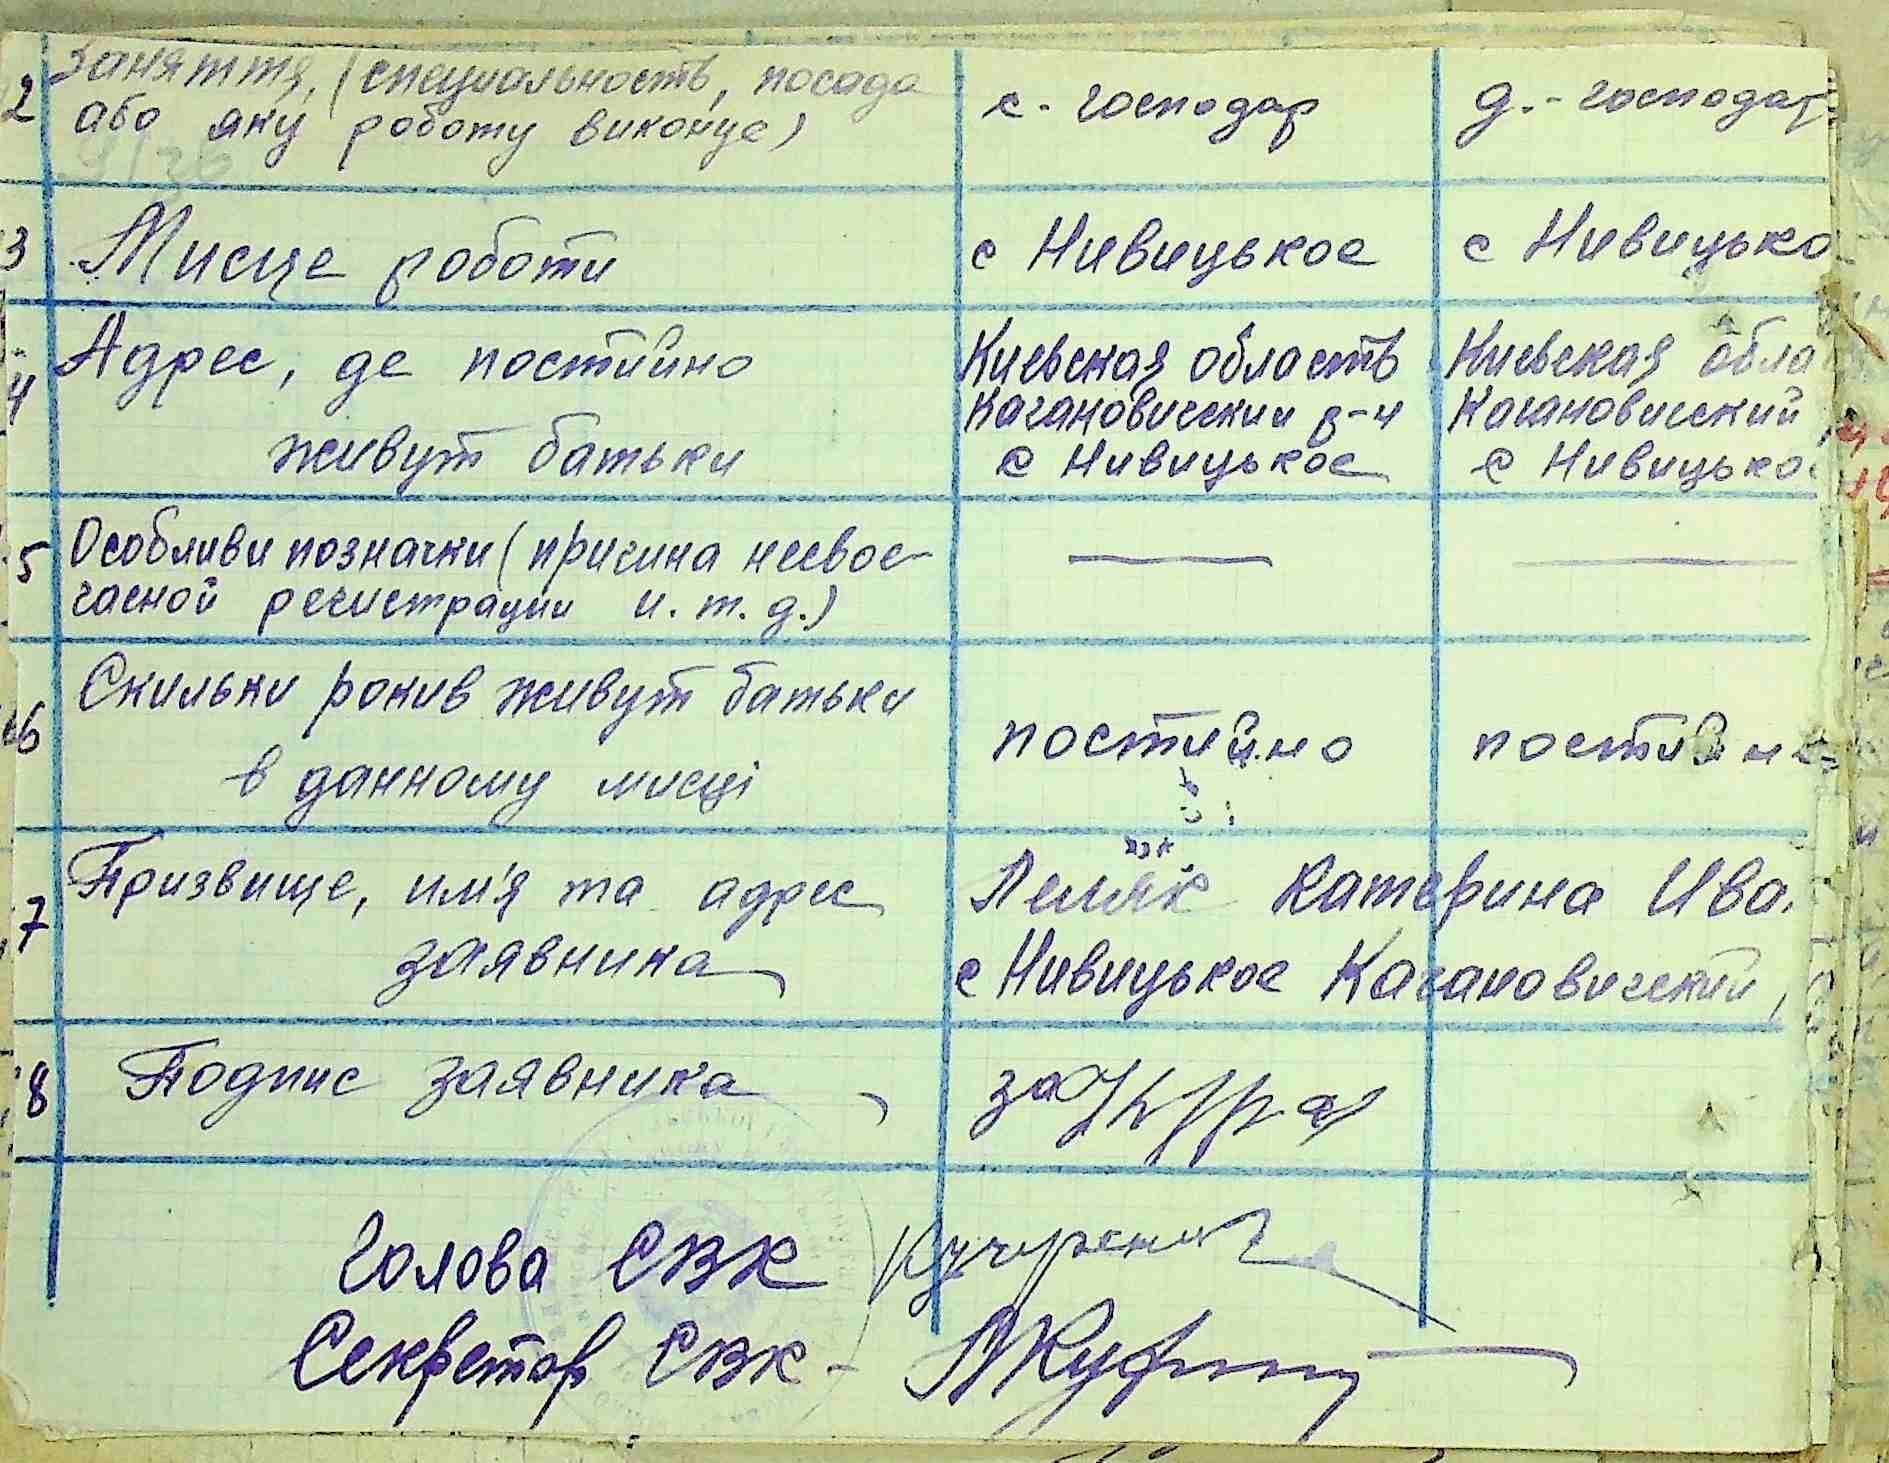 2 Заняття, (специальность, посада
або яку роботу виконує)
с. - господар
д. - господар
3 Мисце роботи
с Нивицькое
с Нивицько
4 Адрес, де постийно
живут батьки
Киевская область
Кагановический р-н
с Нивицькое
Киевская обла
Кагановический
с Нивицькое
5 Особливи позначки (причина несвое-
часной регистрации и. т. д.)
—
—
6 Скильки рокив живут батьки
в данному мисці
постийно
постийно
7 Призвище, им'я та адрес
заявника
Катерина Ива
с Нивицькое Кагановический
8 Подпис заявника
за
Голова СВК
Секретар СВК -